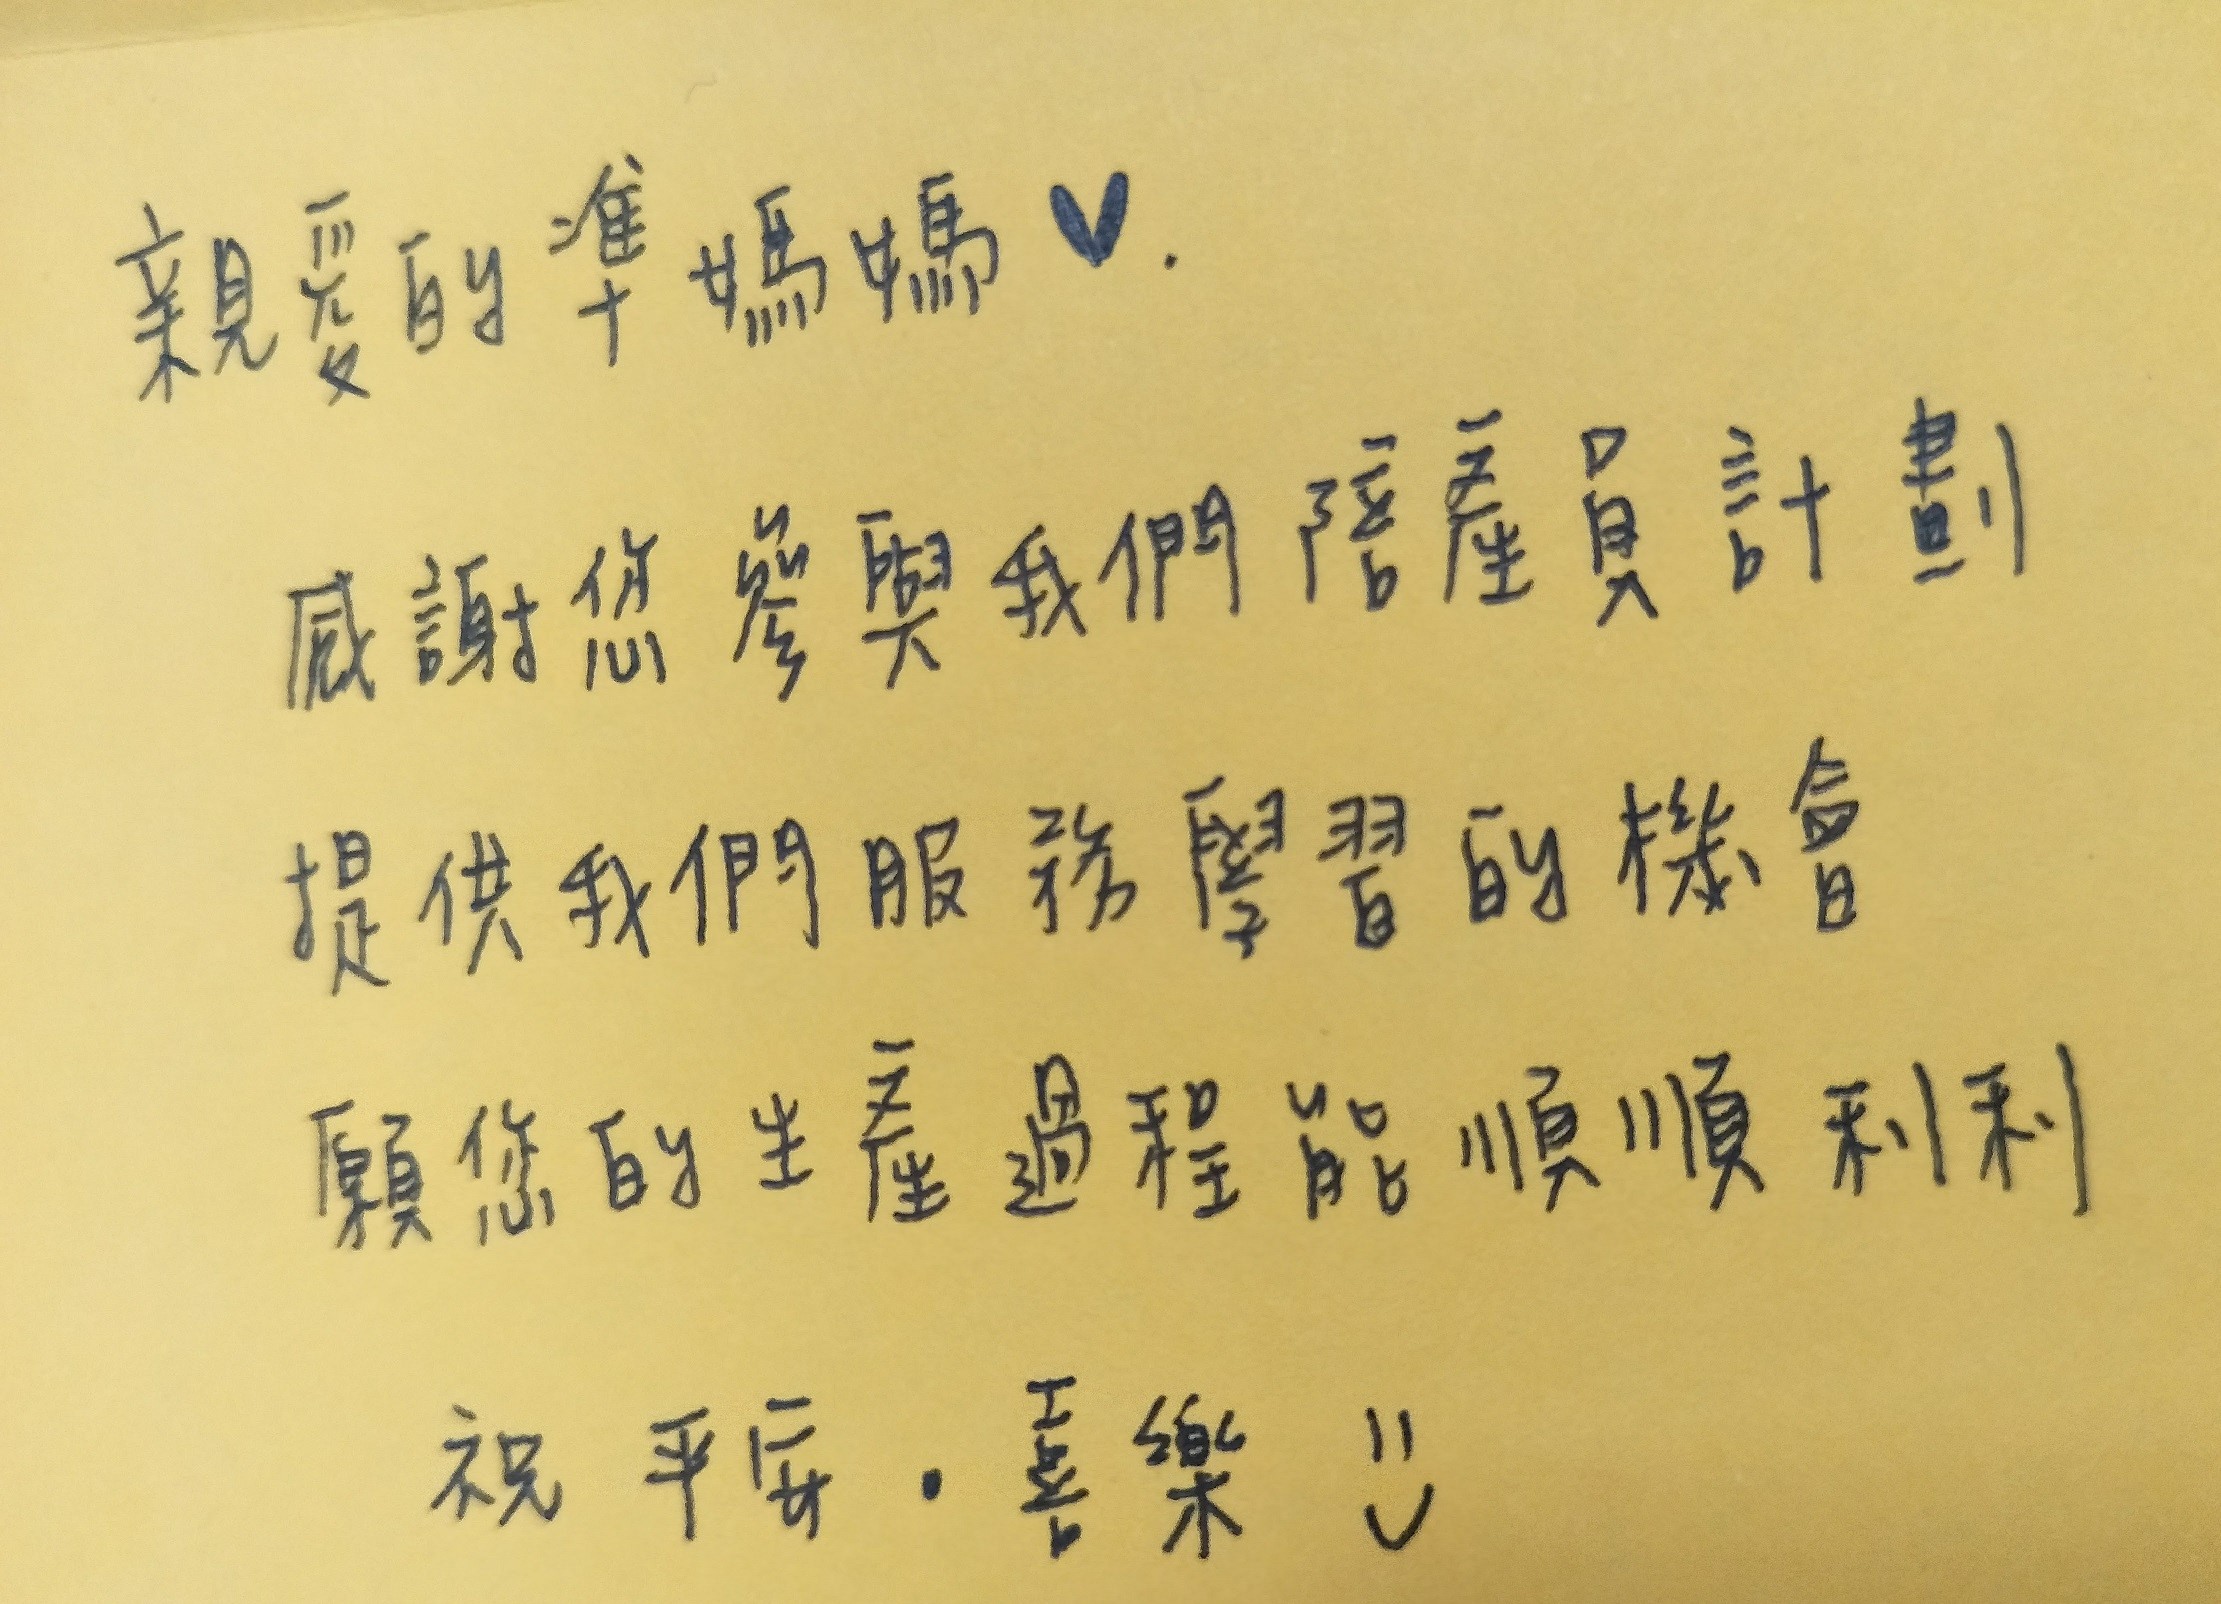 親愛的準媽媽♥.
感謝您參與我們陪產員計劃
提供我們服務學習的機會
願您的生產過程能順順利利
祝 平安・喜樂 :)